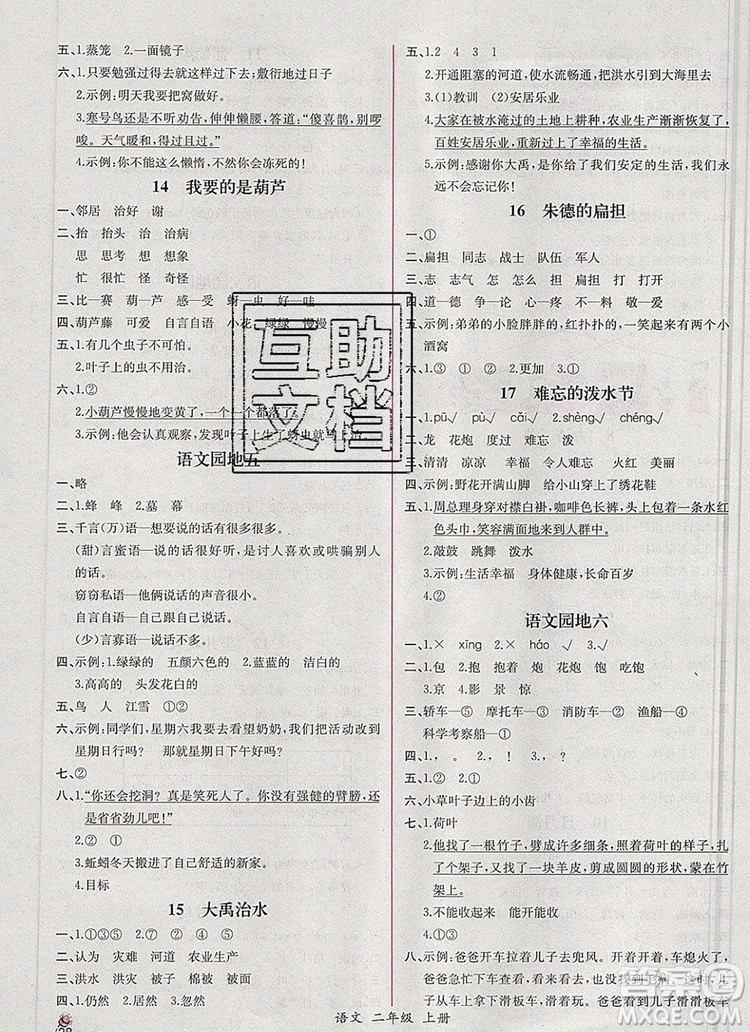 五、1.蒸笼　2.一面镜子
六、1.只要勉强过得去就这样过下去;敷衍地过日子
2.示例:明天我要把窝做好。
3.寒号鸟还是不听劝告,伸伸懒腰,答道:“傻喜鹊,别啰
唆。天气暖和,得过且过。”
4.示例:你不能这么懒惰,不然会冻死的!
14　我要的是葫芦
一、邻居　治好　谢
二、抬　抬头　治　治病
思　思考　想　想象
忙　很忙　怪　奇怪
三、比—赛　葫—芦　感—受　蚜—虫　好—哇
四、葫芦藤　可爱　自言自语　小花　绿绿　慢慢
五、1.有几个虫子不可怕。
2.叶子上的虫不用治。
六、1.②
2.小葫芦慢慢地变黄了,一个一个都落了。
3.示例:他会认真观察,发现叶子上生了蚜虫就马上治。
语文园地五
一、略
二、1.蜂　峰　2.墓　幕
三、千言(万)语—想要说的话有很多很多。
(甜)言蜜语—说的话很好听,是讨人喜欢或哄骗别人
的话。
窃窃私语—说话的声音很小。
自言自语—自己跟自己说话。
(少)言寡语—平时说话很少。
四、示例:1.绿绿的　五颜六色的　2.蓝蓝的　洁白的
3.高高的　头发花白的
五、鸟　人　江雪　①②
六、示例:同学们,星期六我要去看望奶奶,我们的活动改到
星期日行吗?　那就星期日下午好吗?
七、②
八、1.“你还会挖洞?真是笑死人了。你没有强健的臂膀,还
是省省劲儿吧!”
2.②
3.蚯蚓冬天搬进了自己舒适的新家。
4.目标
15　大禹治水
一、1.①③⑤　2.②④⑥
二、认为　灾难　河道　农业生产
三、洪水　洪灾　被子　棉被　被面
四、1.仍然　2.居然　3.依然
五、1.2　4　3　1
2.开通阻塞的河道,使水流畅通,把洪水引到大海里去
3.(1)教训　(2)安居乐业
4.大家在被水淹过的土地上耕种,农业生产渐渐恢复了,
百姓安居乐业,重新过上了幸福的生活。
5.示例:感谢你大禹,是你给了我们安定的生活,我们永
远不会忘记你!
16　朱德的扁担
一、①
二、扁担　同志　战士　队伍　军人
三、志　志气　怎　怎么　担　扁担　打　打开
四、道—德　争—论　心—疼　料—理　敬—爱
五、示例:弟弟的小脸胖胖的,红扑扑的,还有两个小
酒窝
六、1.①③　2.更加　3.②
17　难忘的泼水节
一、1.pū√　pù√　cǎi√　2.shèng√　chéng√
二、龙　花炮　度过　灑满　敬爱
三、清清　凉凉　幸福　令人难忘　火红火红
四、示例:野花开满山坡　给小山穿上了绣花鞋
五、1.周总理身穿对襟白褂,咖啡色长裤,头上包着一条水红
色头巾,笑容满面地来到人群中。
2.敲鼓　跳舞　泼水
3.示例:生活幸福　身体健康,长命百岁
4.②
语文园地六
一、1.×　xīng　2.×　háo　√　3.√
二、1.包　2.抱　抱着　炮　花炮　饱　吃饱
3.京　4.影　景　惊
三、轿车—④　摩托车—③　消防车—②　渔船—①
科学考察船—⑤
四、1.,　。　,　2.?　。　,　!
五、1.②　2.①　②③④
六、小草叶子边上的小齿
七、1.荷叶
2.他找来了一根竹子,劈成许多细条,照着荷叶的样子,扎
了个架子,又找了一块羊皮,剪成圆圆的形状,蒙在竹
架上。
3.不能收起来　能收起来
八、示例:爸爸开车拉着儿子去兜风。车熄火了,